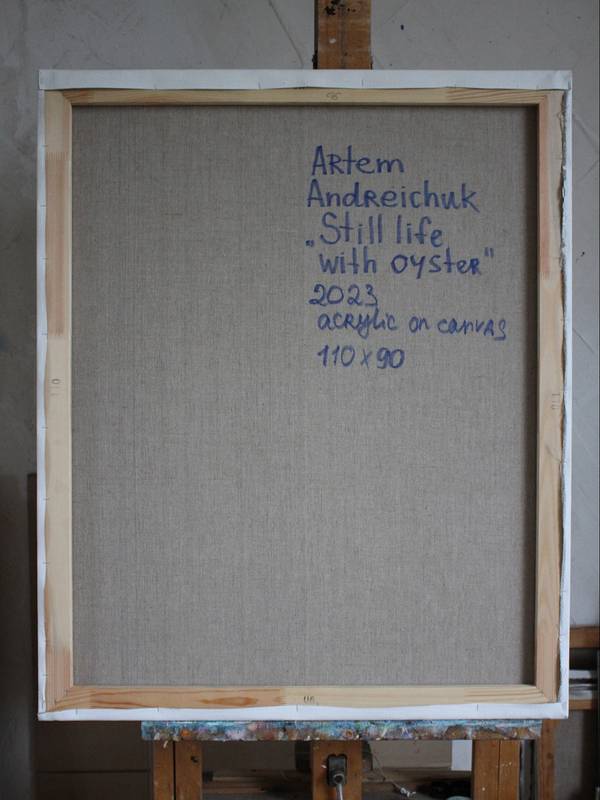 Artem
Andreichuk
„Still life
with oyster"
2023
acrylic on canvas
110 x 90